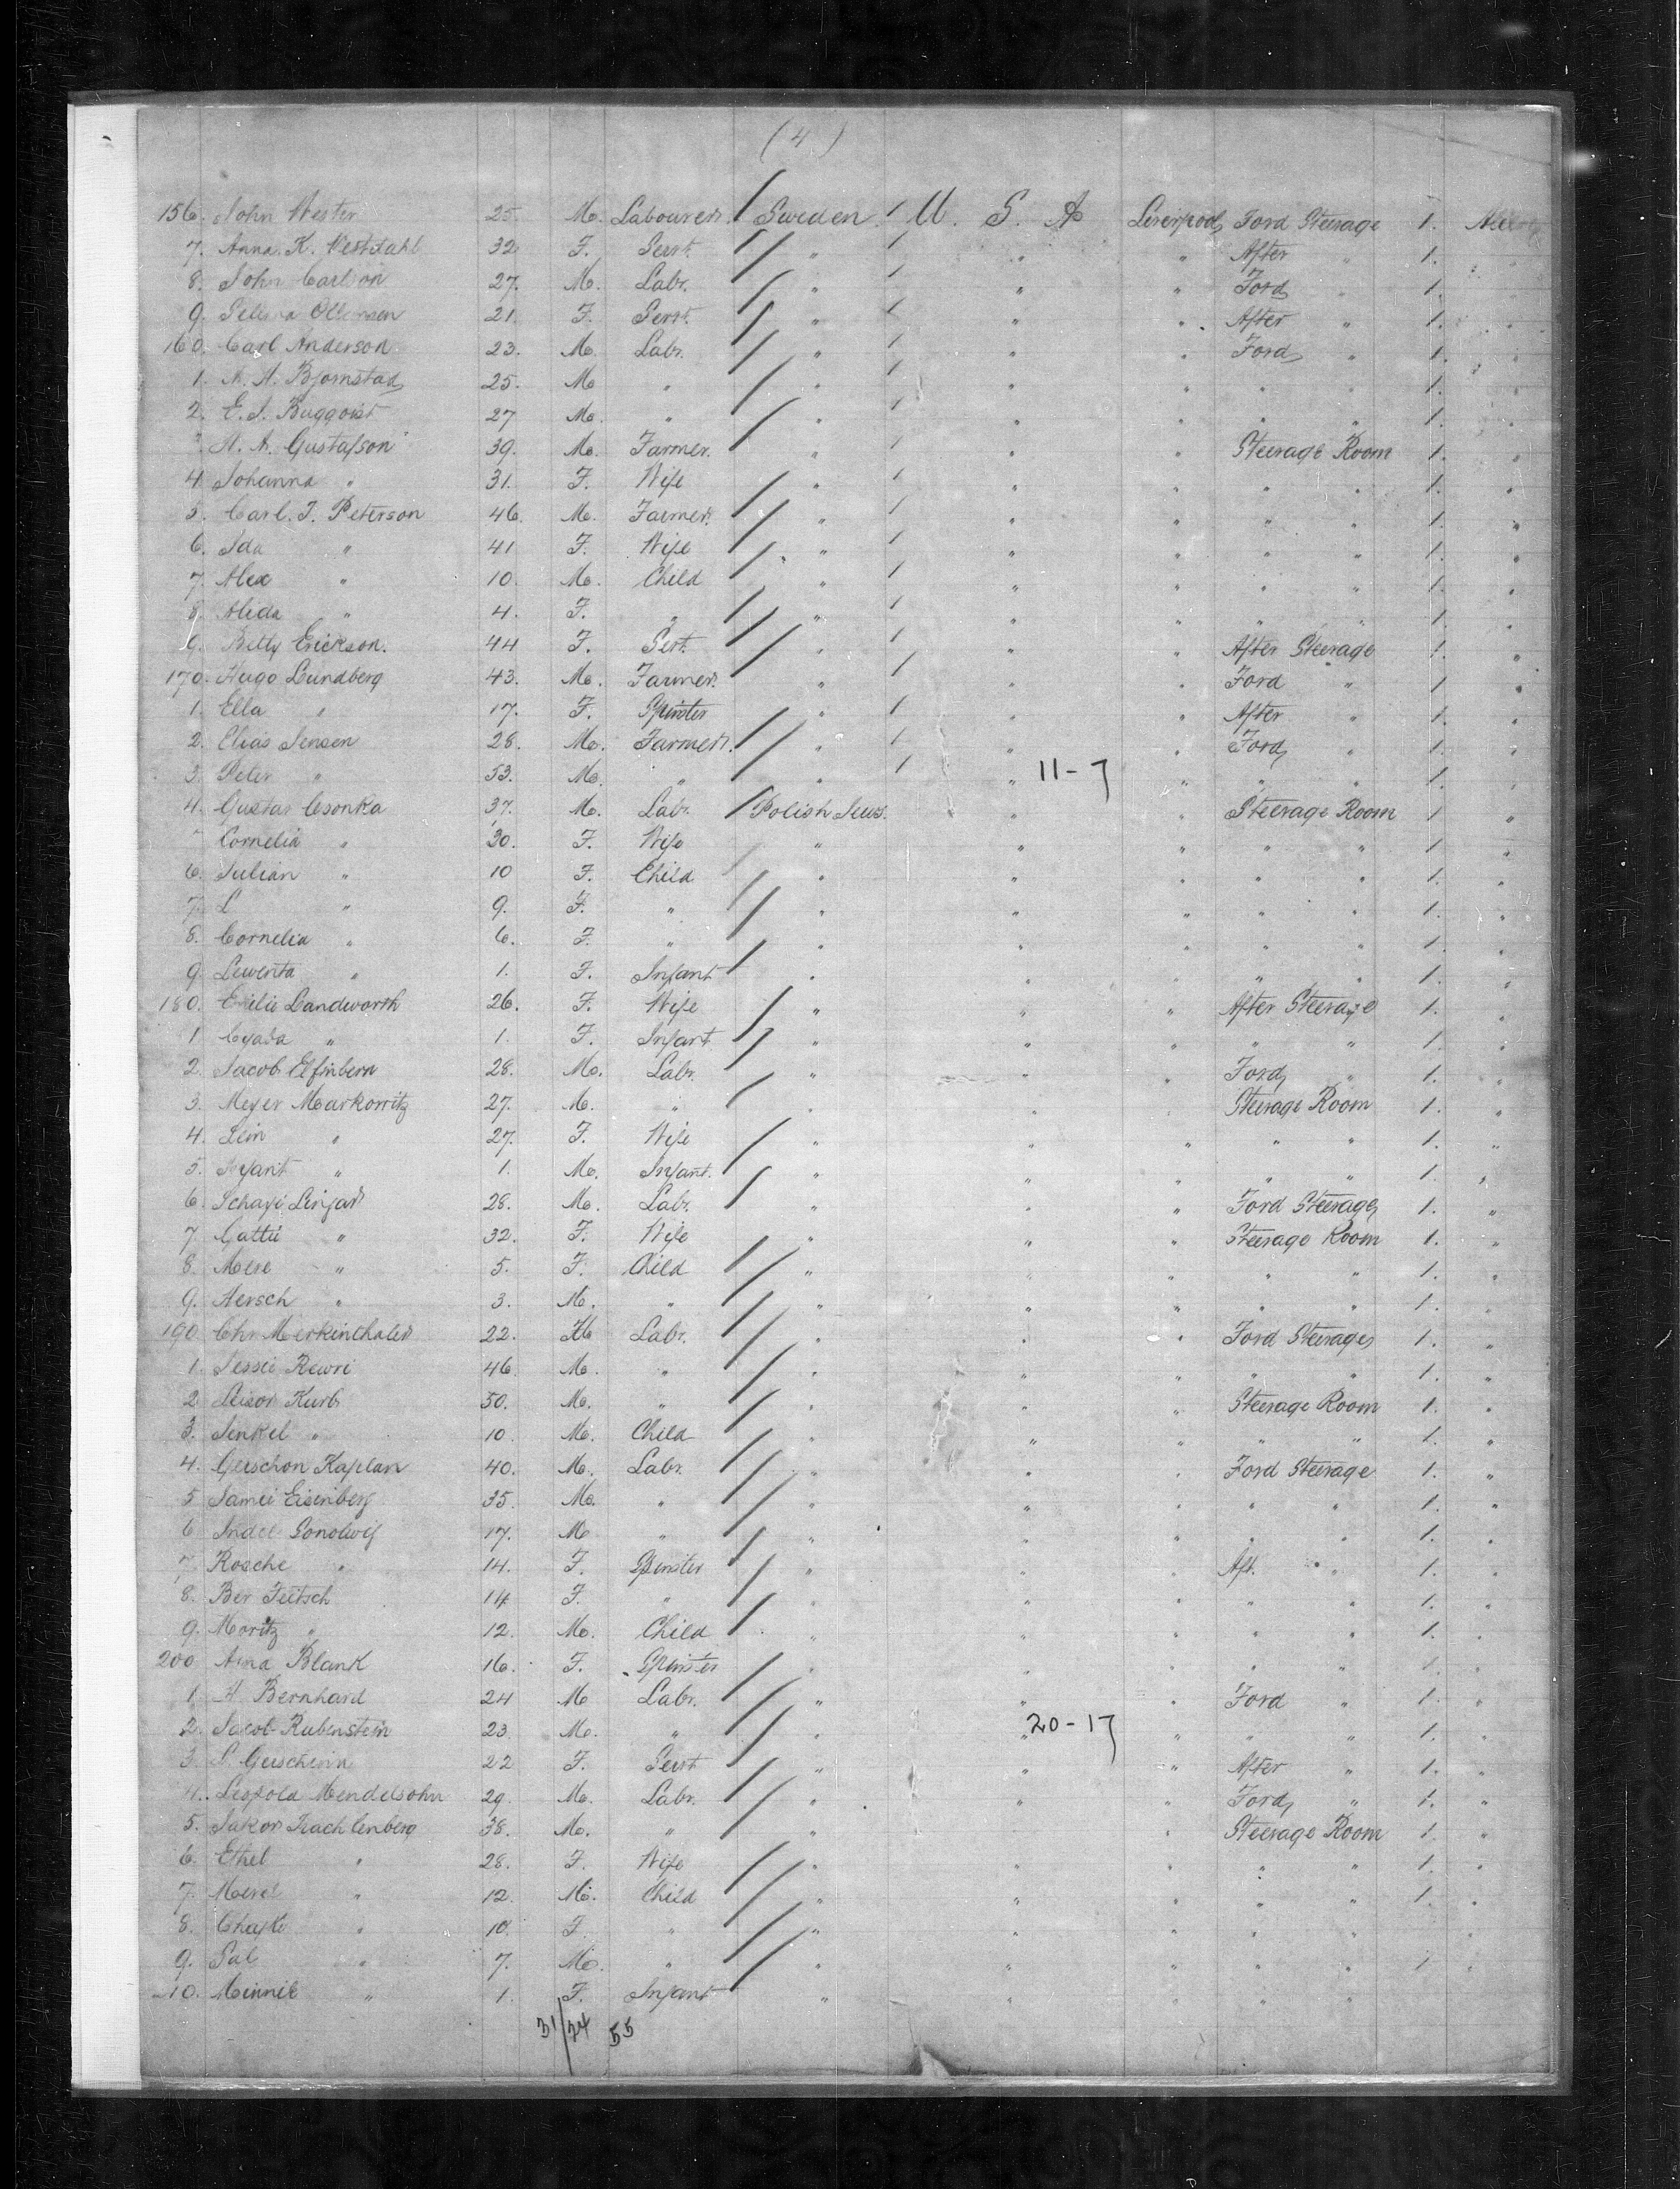 (4)
156. John Wester 25. M. Labourer / Sweden / U. S. A Liverpool Ford Steerage 1.
7. Anna. K. Westdahl 32 F. Servt. / " / " " After " 1. "
8. John Carlson 27. M. Labr. / " / " " Ford 1. "
9. Selma 21. F. Servt. / " / " " After " 1. "
160. Carl Anderson 23. M. Labr. / " / " " Ford " 1. "
1. A. A. Bjornstad 25. M " / " / " " " " 1. "
2. E. J. 27 M. " / " / " " " " 1. "
A. A. Gustafson 39. M. Farmer. / " / " " Steerage Room 1. "
4. Johanna " 31. F. Wife / " / " " " " 1. "
5. Carl. J. Peterson 46. M. Farmer. / " / " " " " 1. "
6. Ida " 41 F. Wife / " / " " " " 1. "
7. Alex " 10. M. Child / " / " " " " 1. "
8. Alida " 4. F. " / " / " " " " 1. "
9. Betty Erickson. 44 F. Sert. / " / " " After Steerage 1. "
170. Hugo Lundberg 43. M. Farmer. " / " " Ford " 1 "
1. Ella " 17. F. Spinster " / " " After " 1. "
2. Elias Jensen 28. M. Farmer. / " / " " Ford " 1. "
3. Peter " 53. M. " / " / " 11-7 " " " 1. "
4. Gustav Csonka 37. M. Labr. / Polish Jews. " " Steerage Room 1 "
Cornelia " 30. F. Wife / " " " " " 1 "
6. Julian " 10 F. Child / " " " " " 1. "
7. L " 9. F. " / " " " " " 1. "
8. Cornelia " 6. F. " / " " " " " 1. "
9. Lewenta " 1. F. Infant / " " " " " 1. "
180. Emilie Landworth 26. F. Wife / " " " After Steerage 1. "
1 " 1. F. Infant / " " " " " 1. "
2. Jacob Elfinbern 28. M. Labr. / " " " Ford " 1. "
3. Meyer Markowitz 27. M. " / " " " Steerage Room 1. "
4. Lein " 27. F. Wife / " " " " " 1. "
5. Infant " 1. M. Infant. / " " " " " 1. "
6. Schaye 28. M. Labr. / " " " Ford Steerage 1. "
7 Gattie " 32. F. Wife / " " " Steerage Room 1. "
8. Mere " 5. F. Child / " " " " " 1. "
9. Hersch " 3. M. " / " " " " " 1. "
190 Chr Merkinthaler 22. M Labr. / " " " Ford Steerage 1. "
1. Jessie Rewri 46 M. " / " " " " " 1. "
2 Leisor Kurb 50. M. " / " " " Steerage Room 1. "
3. Jenkel " 10. M. Child / " " " " " 1. "
4. Gerschon Kaplan 40. M. Labr. / " " " Ford Steerage 1. "
5 Samei Eisenberg 35. M. " / " " " " " 1. "
6 Indel 17. M " / " " " " " 1. "
7 Rosche " 14. F. Spinster / " " " Aft. " 1. "
8. Ber Feitsch 14 F. " / " " " " " 1. "
9. Moritz " 12. M. Child / " " " " " 1. "
200 Anna Blank 16. F. Spinster / " " " " " 1. "
1. H. Bernhard 24 M Labr. / " " " Ford " 1. "
2. Jacob Rubenstein 23 M. " / " " 20-17 " " " 1. "
3. 22 F. Servt / " " " After " 1. "
4. Leopold Mendelsohn 29. M. Labr. / " " " Ford " 1. "
5. Jakor Trachlenberg 38. M. " / " " Steerage Room 1. "
6. Ethel " 28. F. Wife / " " " " " 1. "
7. " 12. M. Child / " " " " " 1. "
8. " 10. F. " / " " " " " "
9. Sal " 7. M. " / " " " " " 1 "
210. Minnie " 1. F. Infant / " " " " "
31/24 55